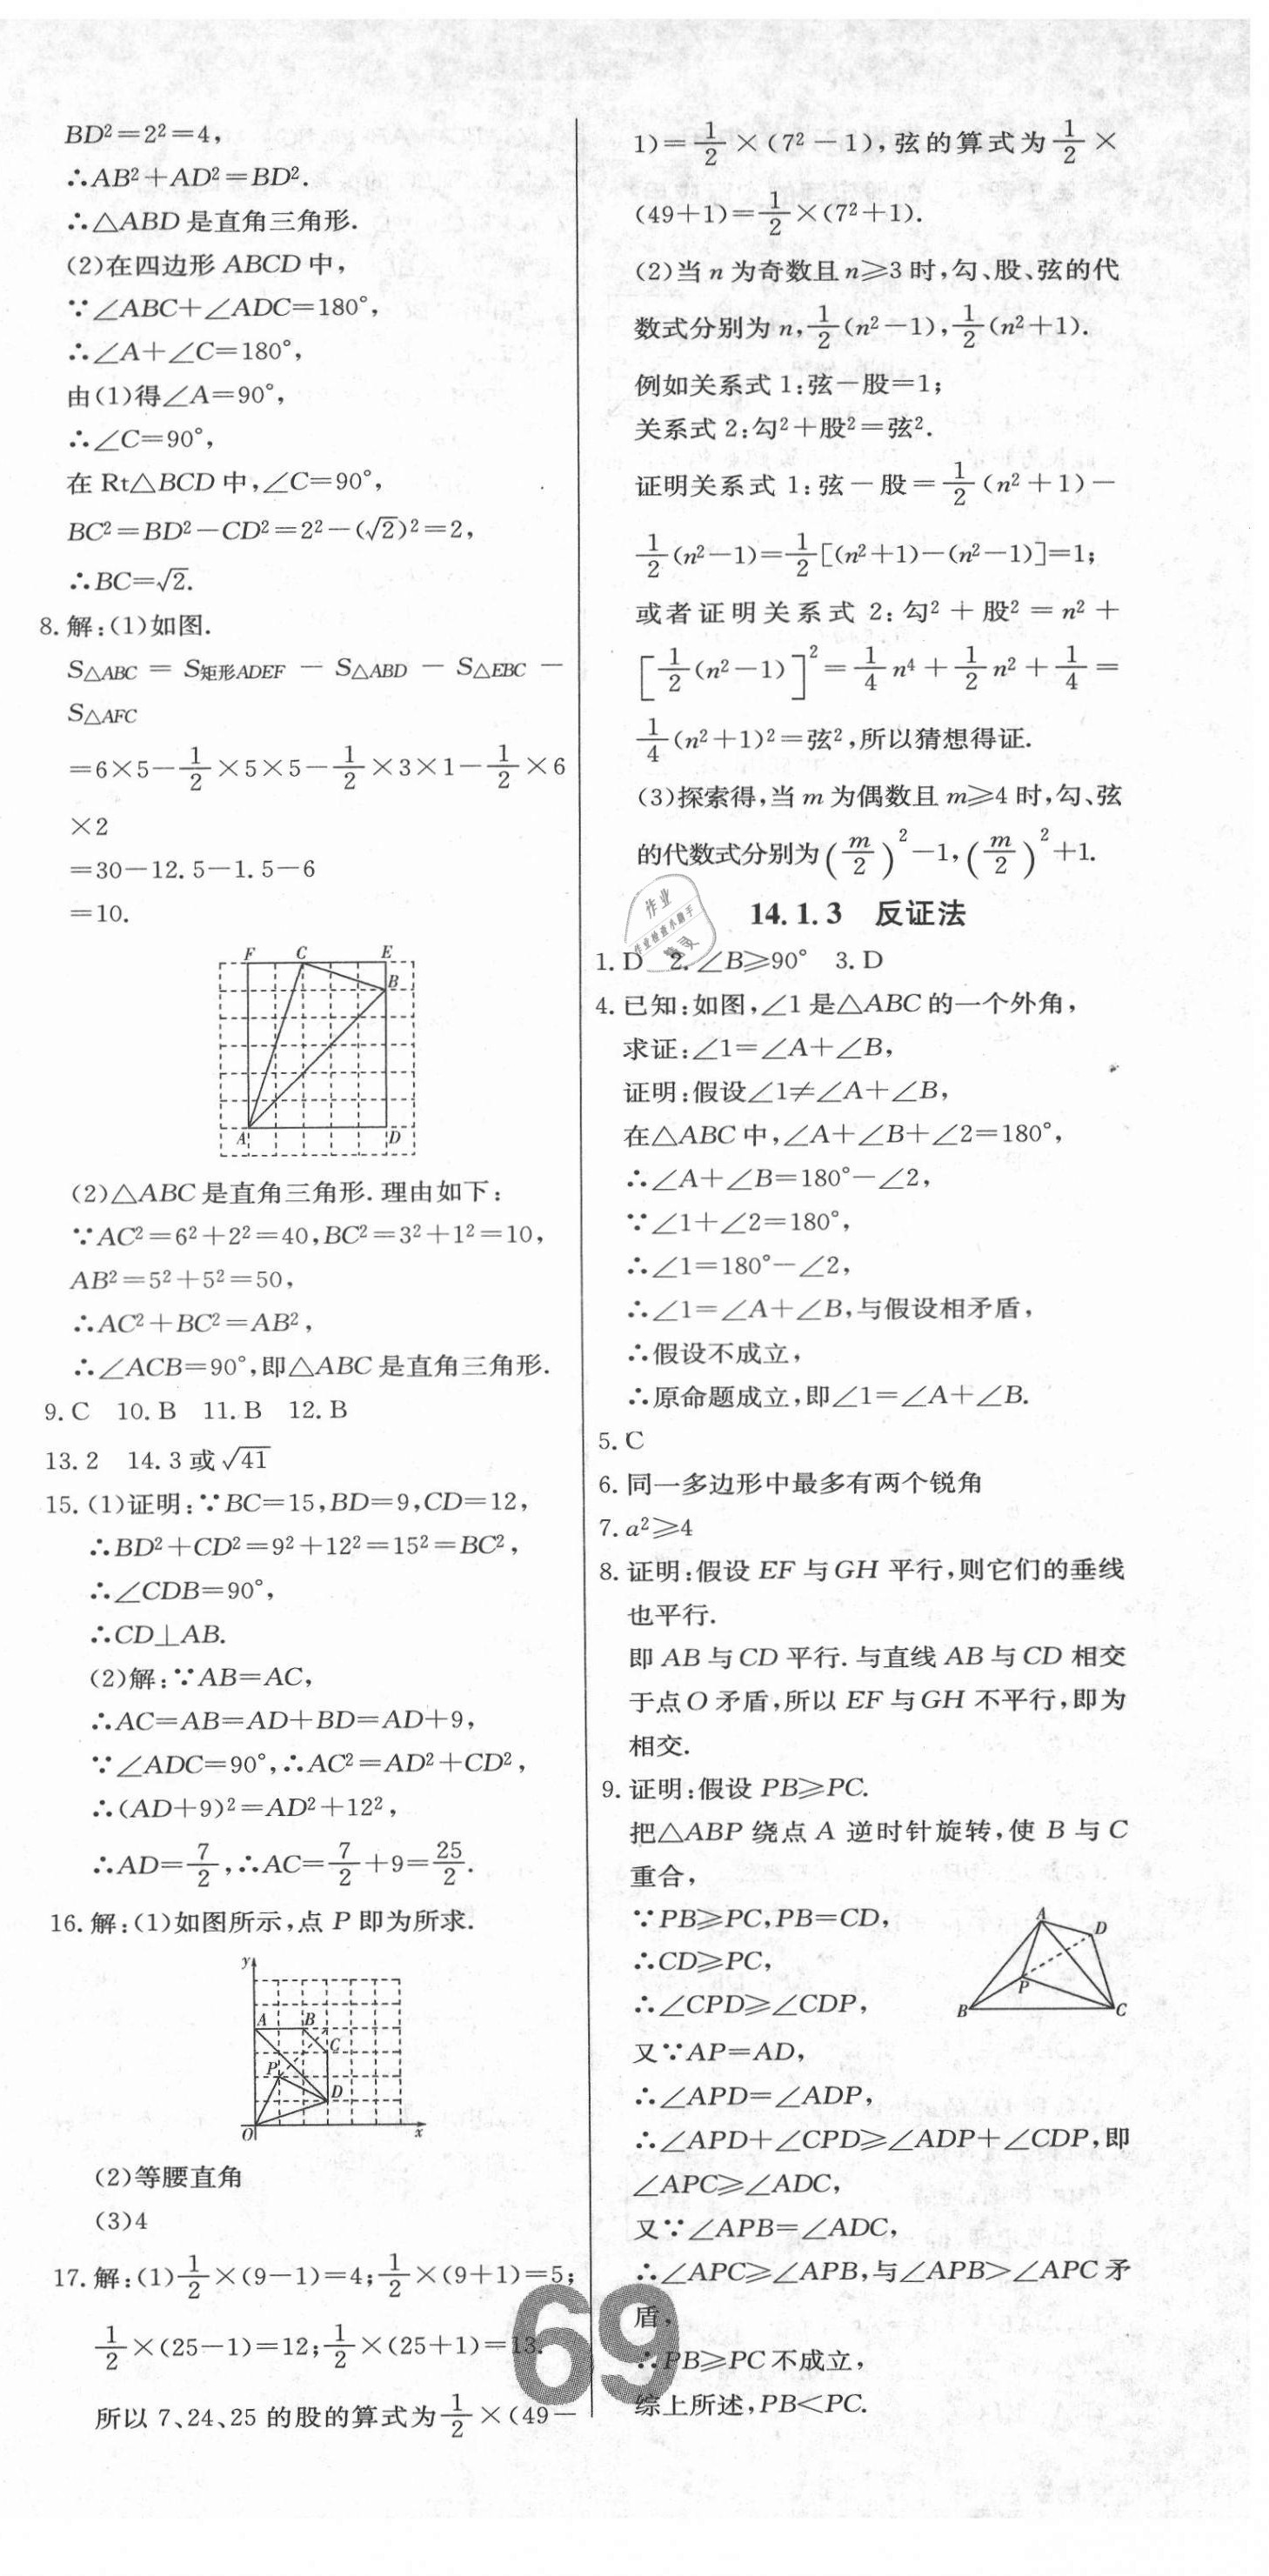 BD²=2²=4,
∴AB²+AD²=BD².
∴△ABD 是直角三角形.
(2)在四边形 ABCD 中,
∵∠ABC+∠ADC=180°,
∴∠A+∠C=180°,
由(1)得∠A=90°,
∴∠C=90°,
在 Rt△BCD 中,∠C=90°,
BC²=BD²-CD²=2²-(√2)²=2,
∴BC=√2.
8. 解:(1)如图.
S△ABC = S矩形ADEF - S△ABD - S△EBC -
S△AFC
=6×5-1/2×5×5-1/2×3×1-1/2×6
×2
=30-12.5-1.5-6
=10.
F C E
B
A D
(2)△ABC 是直角三角形. 理由如下:
∵AC²=6²+2²=40,BC²=3²+1²=10,
AB²=5²+5²=50,
∴AC²+BC²=AB²,
∴∠ACB=90°,即△ABC 是直角三角形.
9. C 10. B 11. B 12. B
13. 2 14. 3 或√41
15. (1)证明:∵BC=15,BD=9,CD=12,
∴BD²+CD²=9²+12²=15²=BC²,
∴∠CDB=90°,
∴CD⊥AB.
(2)解:∵AB=AC,
∴AC=AB=AD+BD=AD+9,
∵∠ADC=90°,∴AC²=AD²+CD²,
∴(AD+9)²=AD²+12²,
∴AD=7/2,∴AC=7/2+9=25/2.
16. 解:(1)如图所示,点 P 即为所求.
y
A B
C
P
D
O x
(2)等腰直角
(3)4
17. 解:(1)1/2×(9-1)=4;1/2×(9+1)=5;
1/2×(25-1)=12;1/2×(25+1)=13.
所以 7、24、25 的股的算式为1/2×(49-
1)=1/2×(7²-1),弦的算式为1/2×
(49+1)=1/2×(7²+1).
(2)当 n 为奇数且 n≥3 时,勾、股、弦的代
数式分别为 n,1/2(n²-1),1/2(n²+1).
例如关系式 1:弦-股=1;
关系式 2:勾²+股²=弦².
证明关系式 1:弦-股=1/2(n²+1)-
1/2(n²-1)=1/2[(n²+1)-(n²-1)]=1;
或者证明关系式 2:勾²+股²=n²+
[1/2(n²-1)]²=1/4n⁴+1/2n²+1/4=
1/4(n²+1)²=弦²,所以猜想得证.
(3)探索得,当 m 为偶数且 m≥4 时,勾、弦
的代数式分别为(m/2)²-1,(m/2)²+1.
14.1.3 反证法
1. D 2. ∠B≥90° 3. D
4. 已知:如图,∠1 是△ABC 的一个外角,
求证:∠1=∠A+∠B,
证明:假设∠1≠∠A+∠B,
在△ABC 中,∠A+∠B+∠2=180°,
∴∠A+∠B=180°-∠2,
∵∠1+∠2=180°,
∴∠1=180°-∠2,
∴∠1=∠A+∠B,与假设相矛盾,
∴假设不成立,
∴原命题成立,即∠1=∠A+∠B.
5. C
6. 同一多边形中最多有两个锐角
7. a²≥4
8. 证明:假设 EF 与 GH 平行,则它们的垂线
也平行.
即 AB 与 CD 平行. 与直线 AB 与 CD 相交
于点 O 矛盾,所以 EF 与 GH 不平行,即为
相交.
9. 证明:假设 PB≥PC.
把△ABP 绕点 A 逆时针旋转,使 B 与 C
重合,
∵PB≥PC,PB=CD,
∴CD≥PC,
∴∠CPD≥∠CDP,
又∵AP=AD,
∴∠APD=∠ADP,
∴∠APD+∠CPD≥∠ADP+∠CDP,即
∠APC≥∠ADC,
又∵∠APB=∠ADC,
∴∠APC≥∠APB,与∠APB>∠APC 矛
盾,
∴PB≥PC 不成立,
综上所述,PB<PC.
A
D
P
B C
作业
作业检查小助手
69